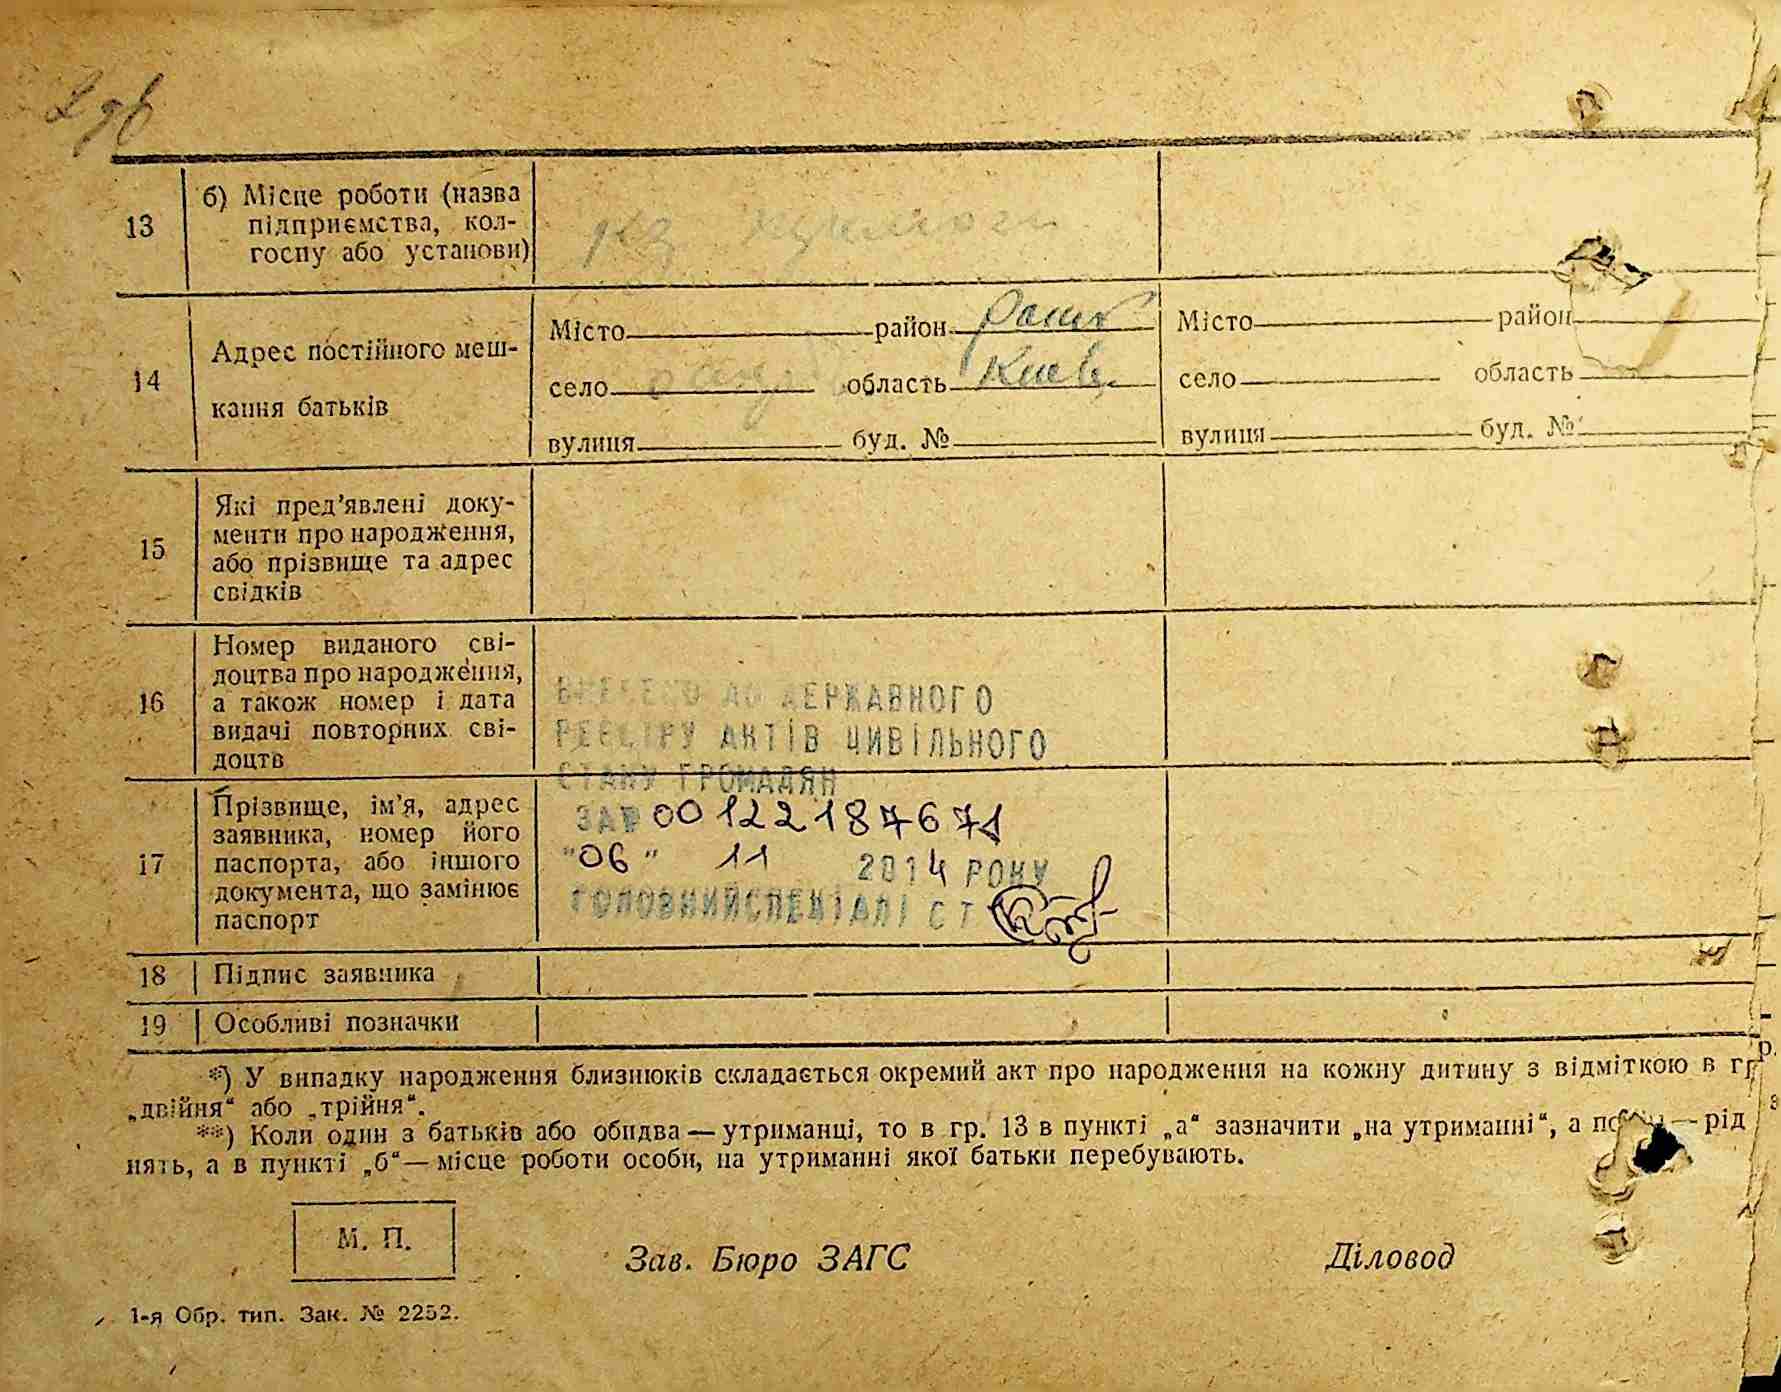 13
б) Місце роботи (назва
підприємства, кол-
госпу або установи)
кз
14
Адрес постійного меш-
кання батьків
Місто район
село область Киев.
вулиця буд. №
Місто район
село область
вулиця буд. №
15
Які пред'явлені доку-
менти про народження,
або прізвище та адрес
свідків
16
Номер виданого сві-
доцтва про народження,
а також номер і дата
видачі повторних сві-
доцтв
ВНЕСЕНО ДО ДЕРЖАВНОГО
РЕЄСТРУ АКТІВ ЦИВІЛЬНОГО
СТАНУ ГРОМАДЯН
ЗА № 00122187671
"06" 11 2014 РОКУ
ГОЛОВНИЙ СПЕЦІАЛІСТ
17
Прізвище, ім'я, адрес
заявника, номер його
паспорта, або іншого
документа, що замінює
паспорт
18 Підпис заявника
19 Особливі позначки
*) У випадку народження близнюків складається окремий акт про народження на кожну дитину з відміткою в гр.
„двійня“ або „трійня“.
**) Коли один з батьків або обидва — утриманці, то в гр. 13 в пункті „а“ зазначити „на утриманні“, а — рід
нять, а в пункті „б“ — місце роботи особи, на утриманні якої батьки перебувають.
М. П.
Зав. Бюро ЗАГС
Діловод
1-я Обр. тип. Зак. № 2252.